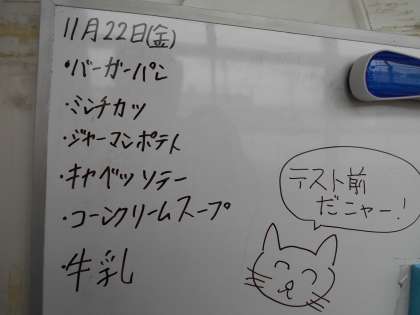 11月22日(金)
・バーガーパン
・ミンチカツ
・ジャーマンポテト
・キャベツソテー
・コーンクリームスープ
・牛乳
テスト前
だニャー!